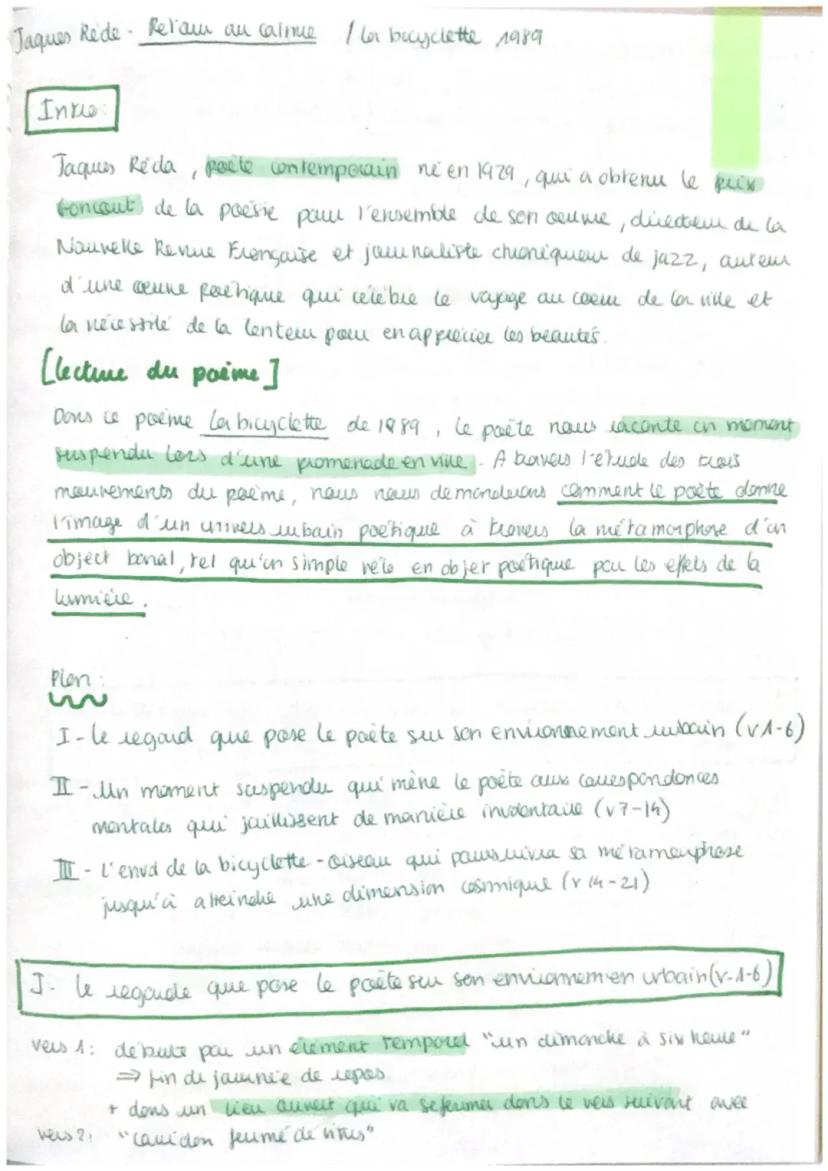 Jaques Réde - Retour au calme / La bicyclette 1989
Intro:
Jaques Réda, poète contemporain né en 1929, qui a obtenu le prix
Goncourt de la poésie pour l'ensemble de son oeuvre, directeur de la
Nouvelle Revue Française et journaliste chroniqueur de jazz, auteur
d'une oeuvre poétique qui célèbre le voyage au coeur de la ville et
la nécessité de la lenteur pour en apprécier les beautés.
[lecture du poème]
Dans ce poème La bicyclette de 1989, le poète nous raconte un moment
suspendu lors d'une promenade en ville. A travers l'étude des trois
mouvements du poème, nous nous demanderons comment le poète donne
l'image d'un univers urbain poétique à travers la métamorphose d'un
object banal, tel qu'un simple vélo en objet poétique par les effets de la
lumière.
Plan:
I - le regard que pose le poète sur son environnement urbain (v1-6)
II - Un moment suspendu qui mène le poète aux correspondances
mentales qui jaillissent de manière involontaire (v7-14)
III - L'envol de la bicyclette-oiseau qui poursuivra sa métamorphose
jusqu'à atteindre une dimension cosmique (v14-21)
I- le regarde que pose le poète sur son environnemen urbain (v-1-6)
vers 1: débute par un élément temporel "un dimanche à six heure"
⇒ fin de journée de repos
+ dans un lieu ouvert qui va se fermer dans le vers suivant avec
vers 2: "couidor fermé de vitres"